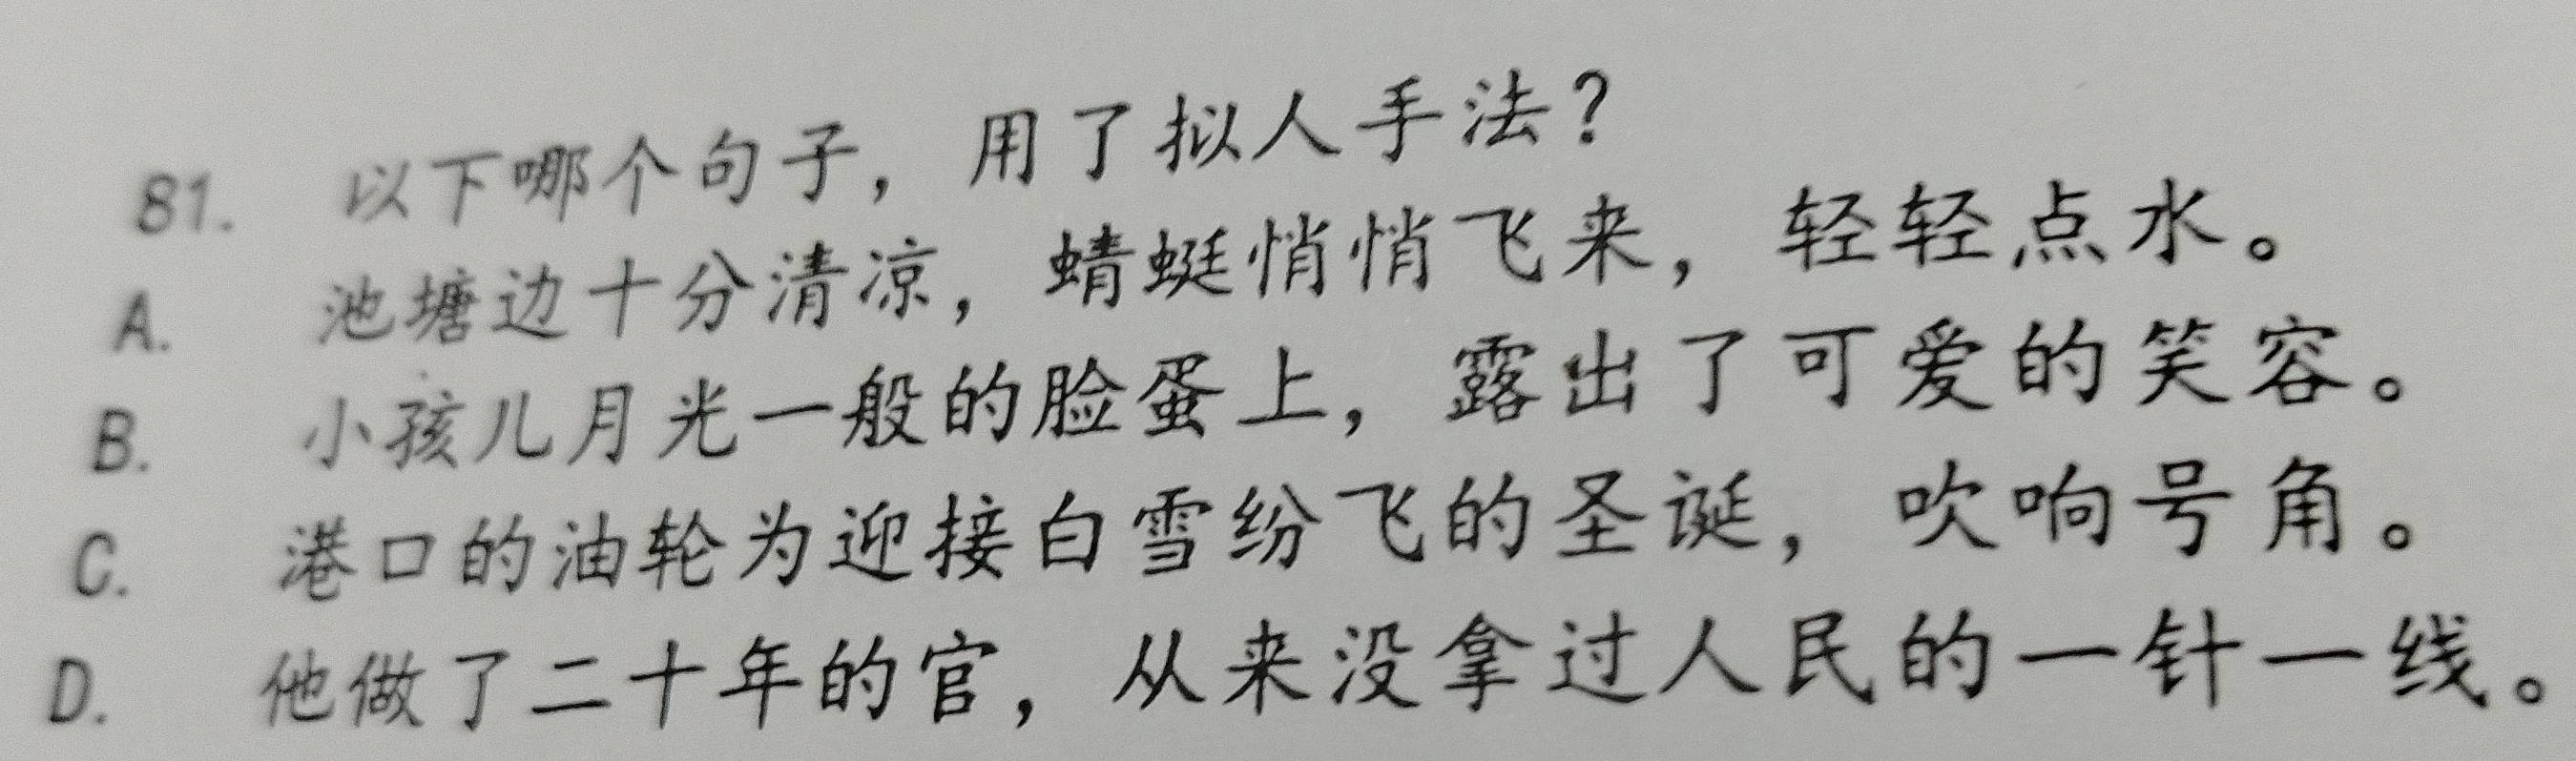 81. 以下哪个句子，用了拟人手法？
A. 池塘边十分清凉，蜻蜓悄悄飞来，轻轻点水。
B. 小孩儿月光一般的脸蛋上，露出了可爱的笑容。
C. 港口的油轮为迎接白雪纷飞的圣诞，吹响号角。
D. 他做了二十年的官，从来没拿过人民的一针一线。